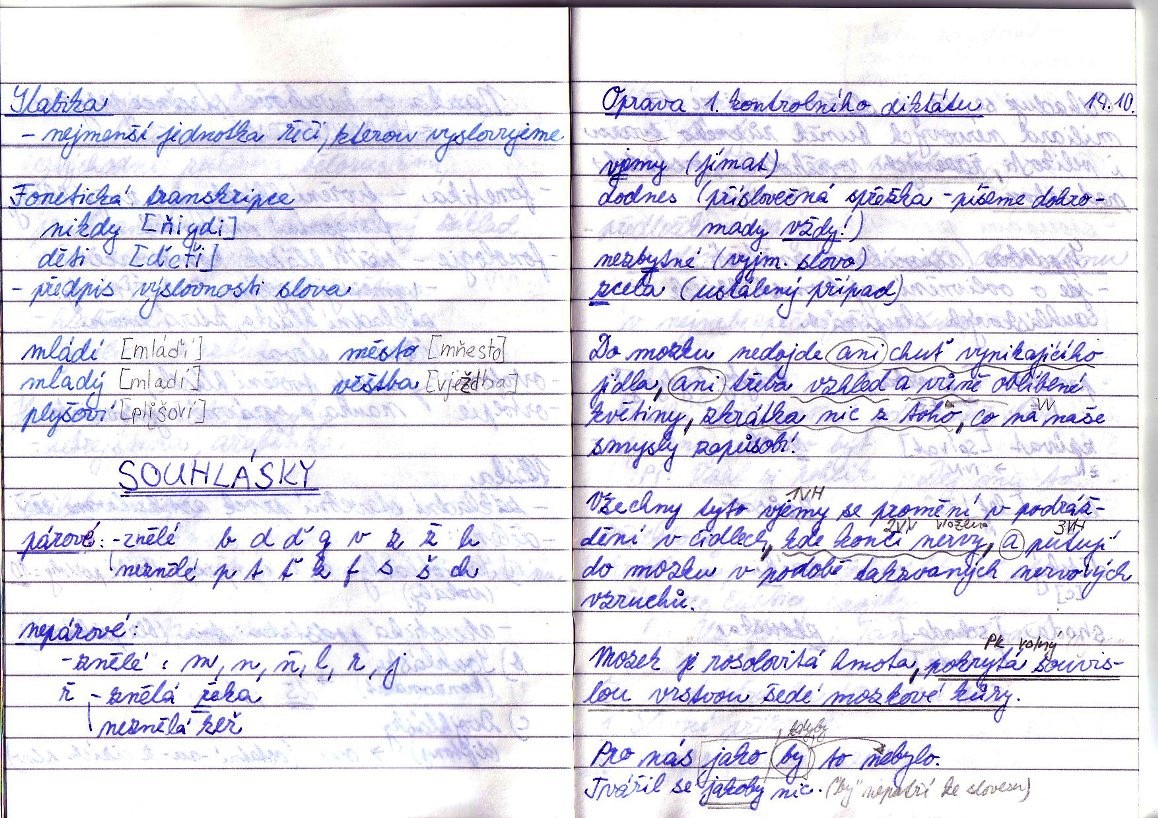 Slabika
- nejmenší jednotka řeči, kterou vyslovujeme
Fonetická transkripce
nikdy [ňigdi]
děti [ďeťi]
- předpis výslovnosti slova
mládí [mláďí] město [mňesto]
mladý [mladí] věštba [vježdba]
plyšoví [plišoví]
SOUHLÁSKY
párové: - znělé b d ď g v z ž h
neznělé p t ť k f s š ch
nepárové:
- znělé : m, n, ň, l, r, j
ř - znělá řeka
neznělá keř
Oprava 1. kontrolního diktátu 19.10.
vjemy (jímat)
dodnes (příslovečná spřežka - píšeme dohro-
mady vždy!)
nezbytné (vyjm. slovo)
zceba (ustálený případ)
Do mozku nedojde ani chuť vynikajícího
jídla, ani třeba vzhled a vůně oblíbené
květiny, zkrátka nic z toho, co na naše
VV
smysly zapůsobí.
1VH
Všechny tyto vjemy se promění v podráž-
2VV vložená 3VH
dění v čidlech, kde končí nervy, a putují
do mozku v podobě takzvaných nervových
vzruchů.
PK volný
Mozek je rosolovitá hmota, pokrytá souvis-
lou vrstvou šedé mozkové kůry.
kdyby
Pro nás jako by to nebylo.
Tvářil se jakoby nic. ("by" nepatří ke slovesu)